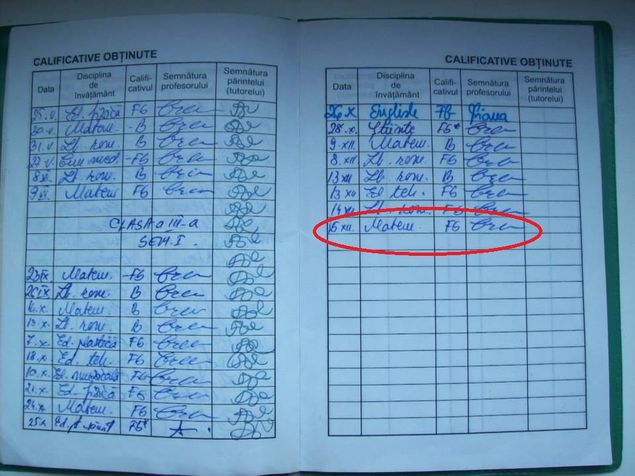 CALIFICATIVE OBȚINUTE
Data Disciplina de învățământ Califi-cativul Semnătura profesorului Semnătura părintelui (tutorelui)
25.V. Ed. fizică FB
30.V. Matem. B
31.V. Lb. rom. B
FB
Lb. rom. B
Matem FB
CLASA a III-a
SEM. I.
Matem. FB
Lb. rom. B
Matem B
Lb. rom. B
7.X. Ed. plastică FB
18.X. Ed. teh. FB
Ed. muzicală FB
Ed. fizică FB
24.X. Matem FB
25.X FB*
CALIFICATIVE OBȚINUTE
Data Disciplina de învățământ Califi-cativul Semnătura profesorului Semnătura părintelui (tutorelui)
26.X Engleză FB Diana
28.X. Științe FB*
9.XII Matem B
8.XII Lb. rom. FB
13 XII Lb. rom. B
13 XII Ed. teh. FB
14 XII Lb. rom. FB
15 XII. Matem. FB